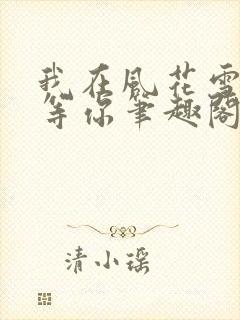 我在风花雪
等你笔趣阁
清小瑶